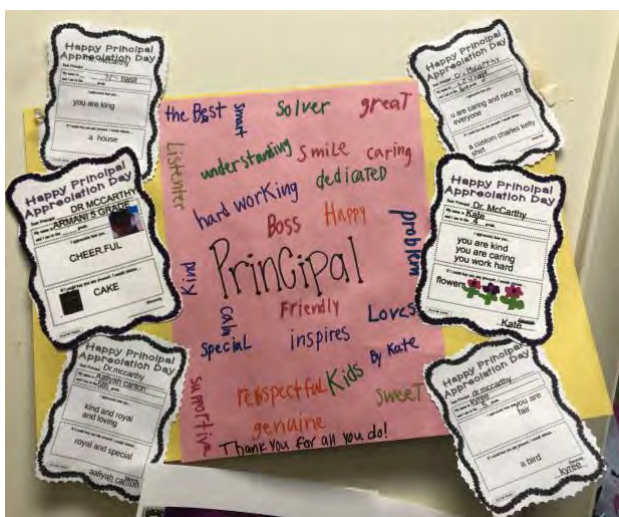 Happy Principal
Appreciation Day
you are king
a house
Happy Principal
Appreciation Day
DR MCCARTHY
ARMANI 5 GRADE
CHEER.FUL
CAKE
Happy Principal
Appreciation Day
Dr.mccarthy
Aaliyah canton
kind and royal
and loving
royal and special
aaliyah canton
the Best
Smart
Solver
great
Listenter
understanding
Smile
caring
hard working
dedicated
Boss
Happy
problem
Principal
Kind
Calm
Friendly
Loves
special
inspires
By Kate
supportive
respectful
Kids
sweet
genuine
Thank you for all you do!
Happy Principal
Appreciation Day
Dr. McCarthy
u are caring and nice to
everyone
a custom charles kelly
shirt
Happy Principal
Appreciation Day
Dr. McCarthy
Kate
you are kind
you are caring
you work hard
flowers
Kate
Happy Principal
Appreciation Day
dr mccarthy
kyree
you are
fair
a bird
kyree